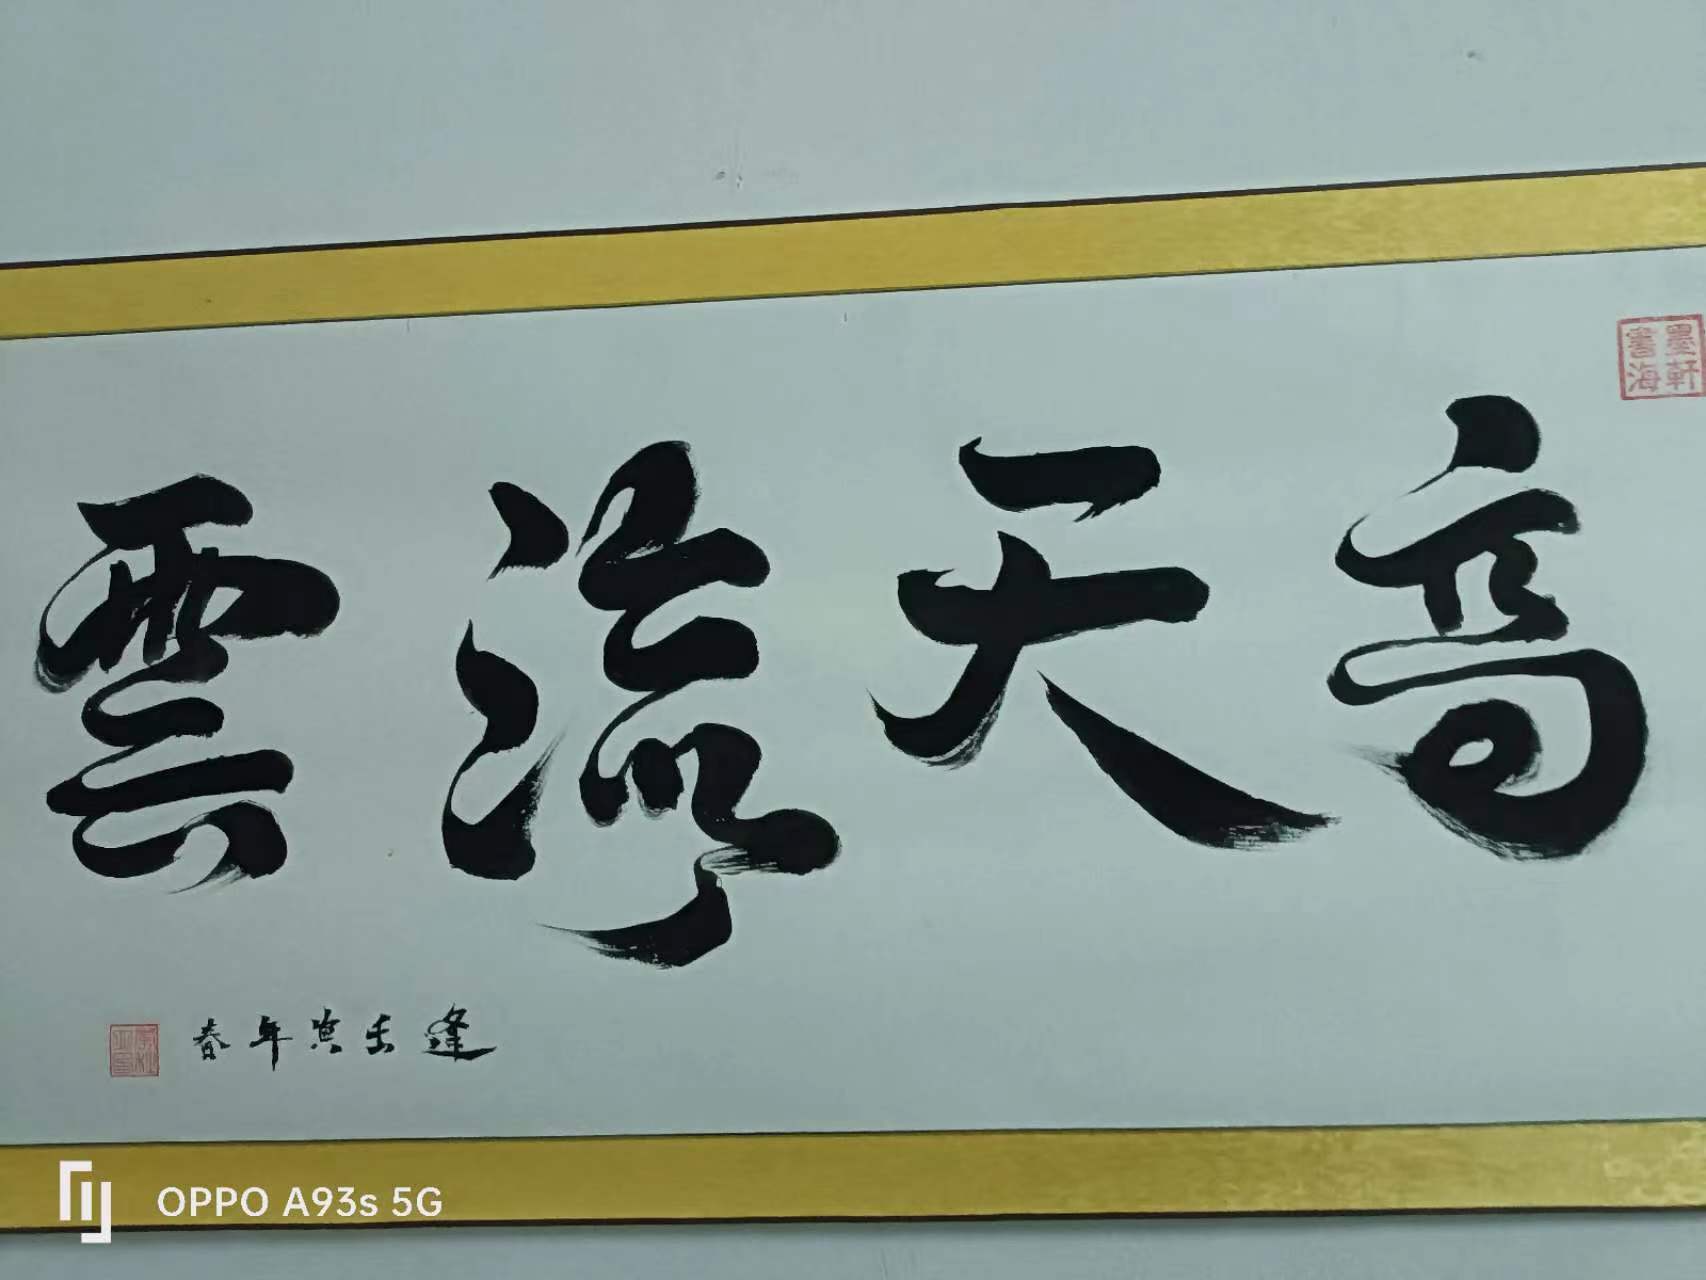 墨軒
書海
高天流雲
逢壬寅年春
OPPO A93s 5G